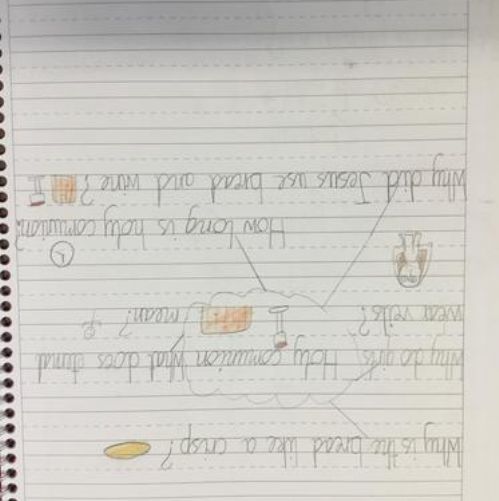 Why is the bread like a crisp?
Why do girls Holy comunion What does
wear veils? mean?
How long is holy comunion?
Why did Jesus use bread and wine?